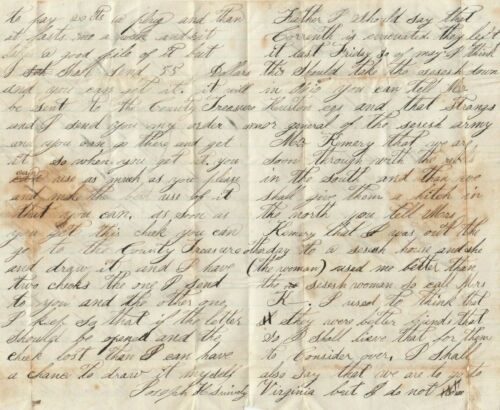 to pay as the is plug and than
it parts me a week and it
a good pile of it but
I shall send 55 Dollars
and you can get it. it will
be sent to the County Treasure
and I send you my order
and you can go there and get
it. so when you get it you
can use as much as you please
and make the best use of it
that you can. as soon as
you get this check you can
go to the County Treasure
and draw it and I have
two checks the one I send
to you and the other one
I keep so that if the letter
should be opened and the
check lost than I can have
a chance to draw it myself
Joseph H
Further I should say that
Corrinth is evacuated they left
it last Friday 30 of may I think
this should take the sesesh down
in dixo you can tell Mr
Houston and that Strange
general of the sesesh army
Mr Kimery that we are
soon through with the
in the south and than we
shall give tham a hitch in
the north you tell Mrs
Kimery that I was out the
otherday to a sesesh house and she
(the woman) used me better than
the sesesh woman so call Mrs
K. I used to think that
they were better friends that
so I shall leave that for them
to, Consider over. I shall
also say that we are to go to
Virginia but I do not